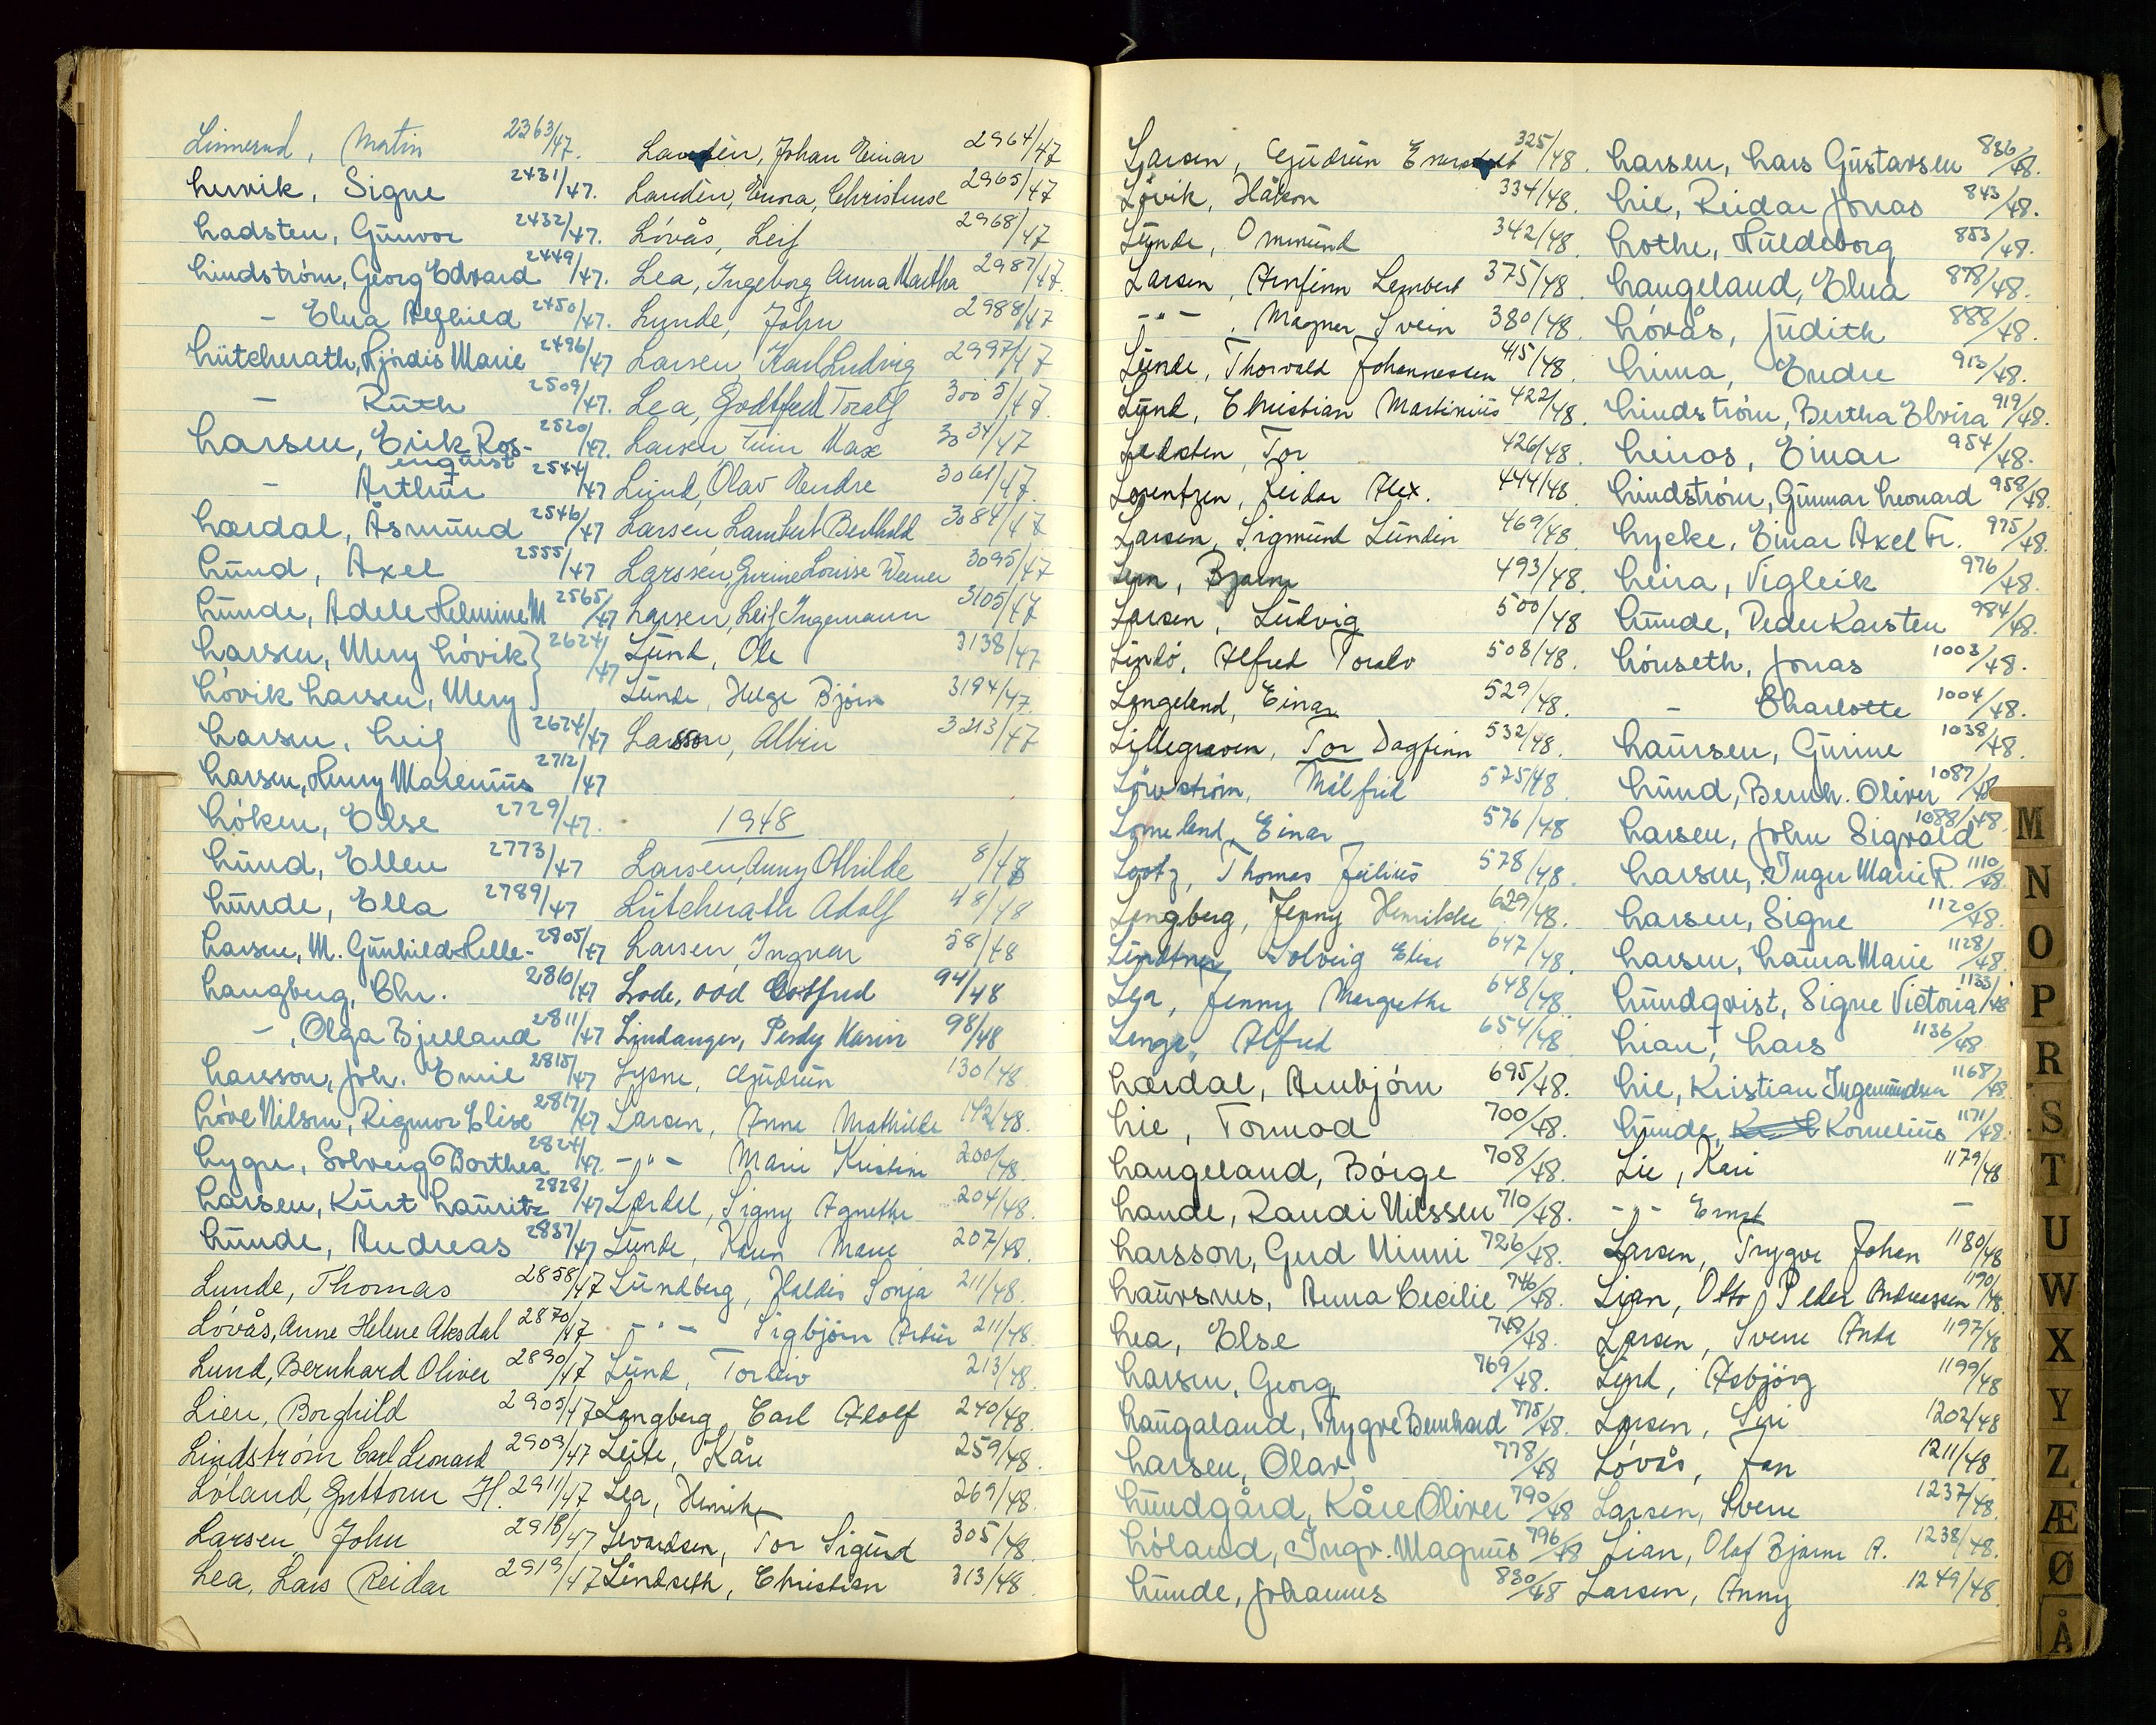 Linnerud, Martin 2363/47.
Lervik, Signe 2431/47.
Ladsten, Gunvor 2432/47.
Lindström, Georg Edvard 2449/47.
- Elna Alfhild 2450/47.
Lütcherath, Hjördis Marie 2496/47
- Ruth 2509/47.
Larsen, Erik Ros- 2520/47.
enquist
- Arthur 2544/47
Lærdal, Åsmund 2546/47
Lund, Axel 2555/47
Lunde, Adele Helmine M 2565/47
Larsen, Mery Lövik } 2624/47
Lövik Larsen, Mery }
Larsen, Leif 2674/47
Larsen, Henry Marenius 2712/47
Löken, Else 2729/47.
Lund, Ellen 2773/47
Lunde, Ella 2789/47
Larsen, M. Gunhild Helle- 2805/47
Langberg, Chr. 2810/47
-, Olga Bjelland 2811/47
Larsson, Joh. Emil 2815/47
Löve Nilsen, Rigmor Elise 2817/47
Lygre, Solveig Dorthea 2824/47.
Larsen, Kurt Lauritz 2828/47
Lunde, Andreas 2837/47
Lunde, Thomas 2858/47
Lövås, Anne Helene Aksdal 2870/47
Lund, Bernhard Oliver 2890/47
Lien, Borghild 2905/47
Lindström Carl Leonard 2909/47
Löland, Guttorm H. 2911/47
Larsen, John 2918/47
Lea, Lars Reidar 2919/47
Landèn, Johan Einar 2964/47
Landèn, Emma, Christense 2965/47
Lövås, Leif 2968/47
Lea, Ingeborg Anna Martha 2987/47
Lunde, John 2988/47
Larsen, Karl Ludvig 2997/47
Lea, Godtfred Toralf 3005/47
Larsen, Finn Max 3034/47
Lund, Olav Hendre 3061/47
Larsen, Lambert Berthold 3084/47
Larssen, Gurine Lousse Werner 3095/47
Larsen, Leif Ingemann 3105/47
Lund, Ole 3138/47
Lunde, Helge Björn 3194/47
Larsson, Albin 3213/47
1948
Larsen, Anny Othilde 8/48
Lütcherath Adolf 48/48
Larsen, Ingvar 58/48
Lode, Odd Gotfred 94/48
Lindanger, Perdy Karin 98/48
Lysne, Gudrun 130/48
Larsen, Anne Mathilde 142/48.
-"- Marie Kristine 200/48.
Lærdal, Signy Agnethe 204/48.
Lunde, Karen Marie 207/48.
Lundberg, Haldis Sonja 211/48.
-"- Sigbjörn Artur 211/48
Lund, Torleiv 213/48
Langberg, Carl Adolf 240/48.
Leite, Kåre 259/48.
Lea, Henrik 269/48.
Levardsen, Tor Sigurd 305/48.
Lindseth, Christian 313/48.
Larsen, Gudrun 325/48.
Lövik, Håkon 334/48.
Lunde, Ommund 342/48.
Larsen, Arnfinn Lambert 375/48.
-"-, Magner Svein 380/48.
Lunde, Thorvald Johannessen 415/48.
Lund, Christian Martinius 422/48.
Ladsten, Tor 426/48.
Lorentzen, Reidar Alex. 444/48.
Larsen, Sigmund Lundin 469/48.
Lem, Bjarne 493/48.
Larsen, Ludvig 500/48
Lindö, Alfred Toralv 508/48.
Langeland, Einar 529/48.
Lillegraven, Tor Dagfinn 532/48.
Lövström, Målfrid 575/48.
Lomeland, Einar 576/48
Lootz, Thomas Julius 578/48.
Langberg, Jenny Henrikke 629/48.
Lindtner Solveig Elise 647/48.
Lea, Jenny Margrethe 648/48.
Lenge, Alfred 654/48
Lærdal, Arnbjörn 695/48.
Lie, Tormod 700/48.
Langeland, Börge 708/48.
Lande, Randi Nilssen 710/48.
Larsson, Gerd Ninni 726/48.
Laursnes, Anna Cecilie 746/48.
Lea, Else 748/48.
Larsen, Georg 769/48.
Laugaland, Trygve Bernhard 775/48.
Larsen, Olav 778/48
Lundgård, Kåre Oliver 790/48
Löland, Ingv. Magnus 796/48
Lunde, Johannes 830/48
Larsen, Lars Gustavsen 836/48.
Lie, Reidar Jonas 843/48.
Lothe, Huldeborg 853/48.
Langeland, Elna 878/48.
Lövås, Judith 888/48.
Lima, Endre 913/48.
Lindström, Bertha Elvira 919/48.
Leiros, Einar 954/48.
Lindström, Gunnar Leonard 958/48.
Lycke, Einar Axel Fr. 975/48.
Leira, Vigleik 976/48.
Lunde, Peder Karsten 984/48.
Lönseth, Jonas 1003/48.
- Charlotte 1004/48.
Laursen, Gurine 1038/48.
Lund, Bernh. Oliver 1087/48
Larsen, John Sigvald 1088/48.
Larsen, Inger Marie R. 1110/48.
Larsen, Signe 1120/48.
Larsen, Laura Marie 1128/48.
Lundqvist, Signe Victoria 1133/48
Lian, Lars 1136/48
Lie, Kristian Ingemundsen 1168/48
Lunde, Kornelius 1171/48.
Lie, Kari 1179/48
-"- Ernst -
Larsen, Trygve Johan 1180/48
Lian, Otto Peder Andreassen 1190/48.
Larsen, Sverre Ande 1197/48
Lund, Asbjörg 1199/48
Larsen, Siri 1202/48
Lövås, Jan 1211/48
Larsen, Sverre 1237/48.
Lian, Olaf Bjarne A. 1238/48.
Larsen, Anny 1249/48.
M
N
O
P
R
S
T
U
W
X
Y
Z
Æ
Ø
Å